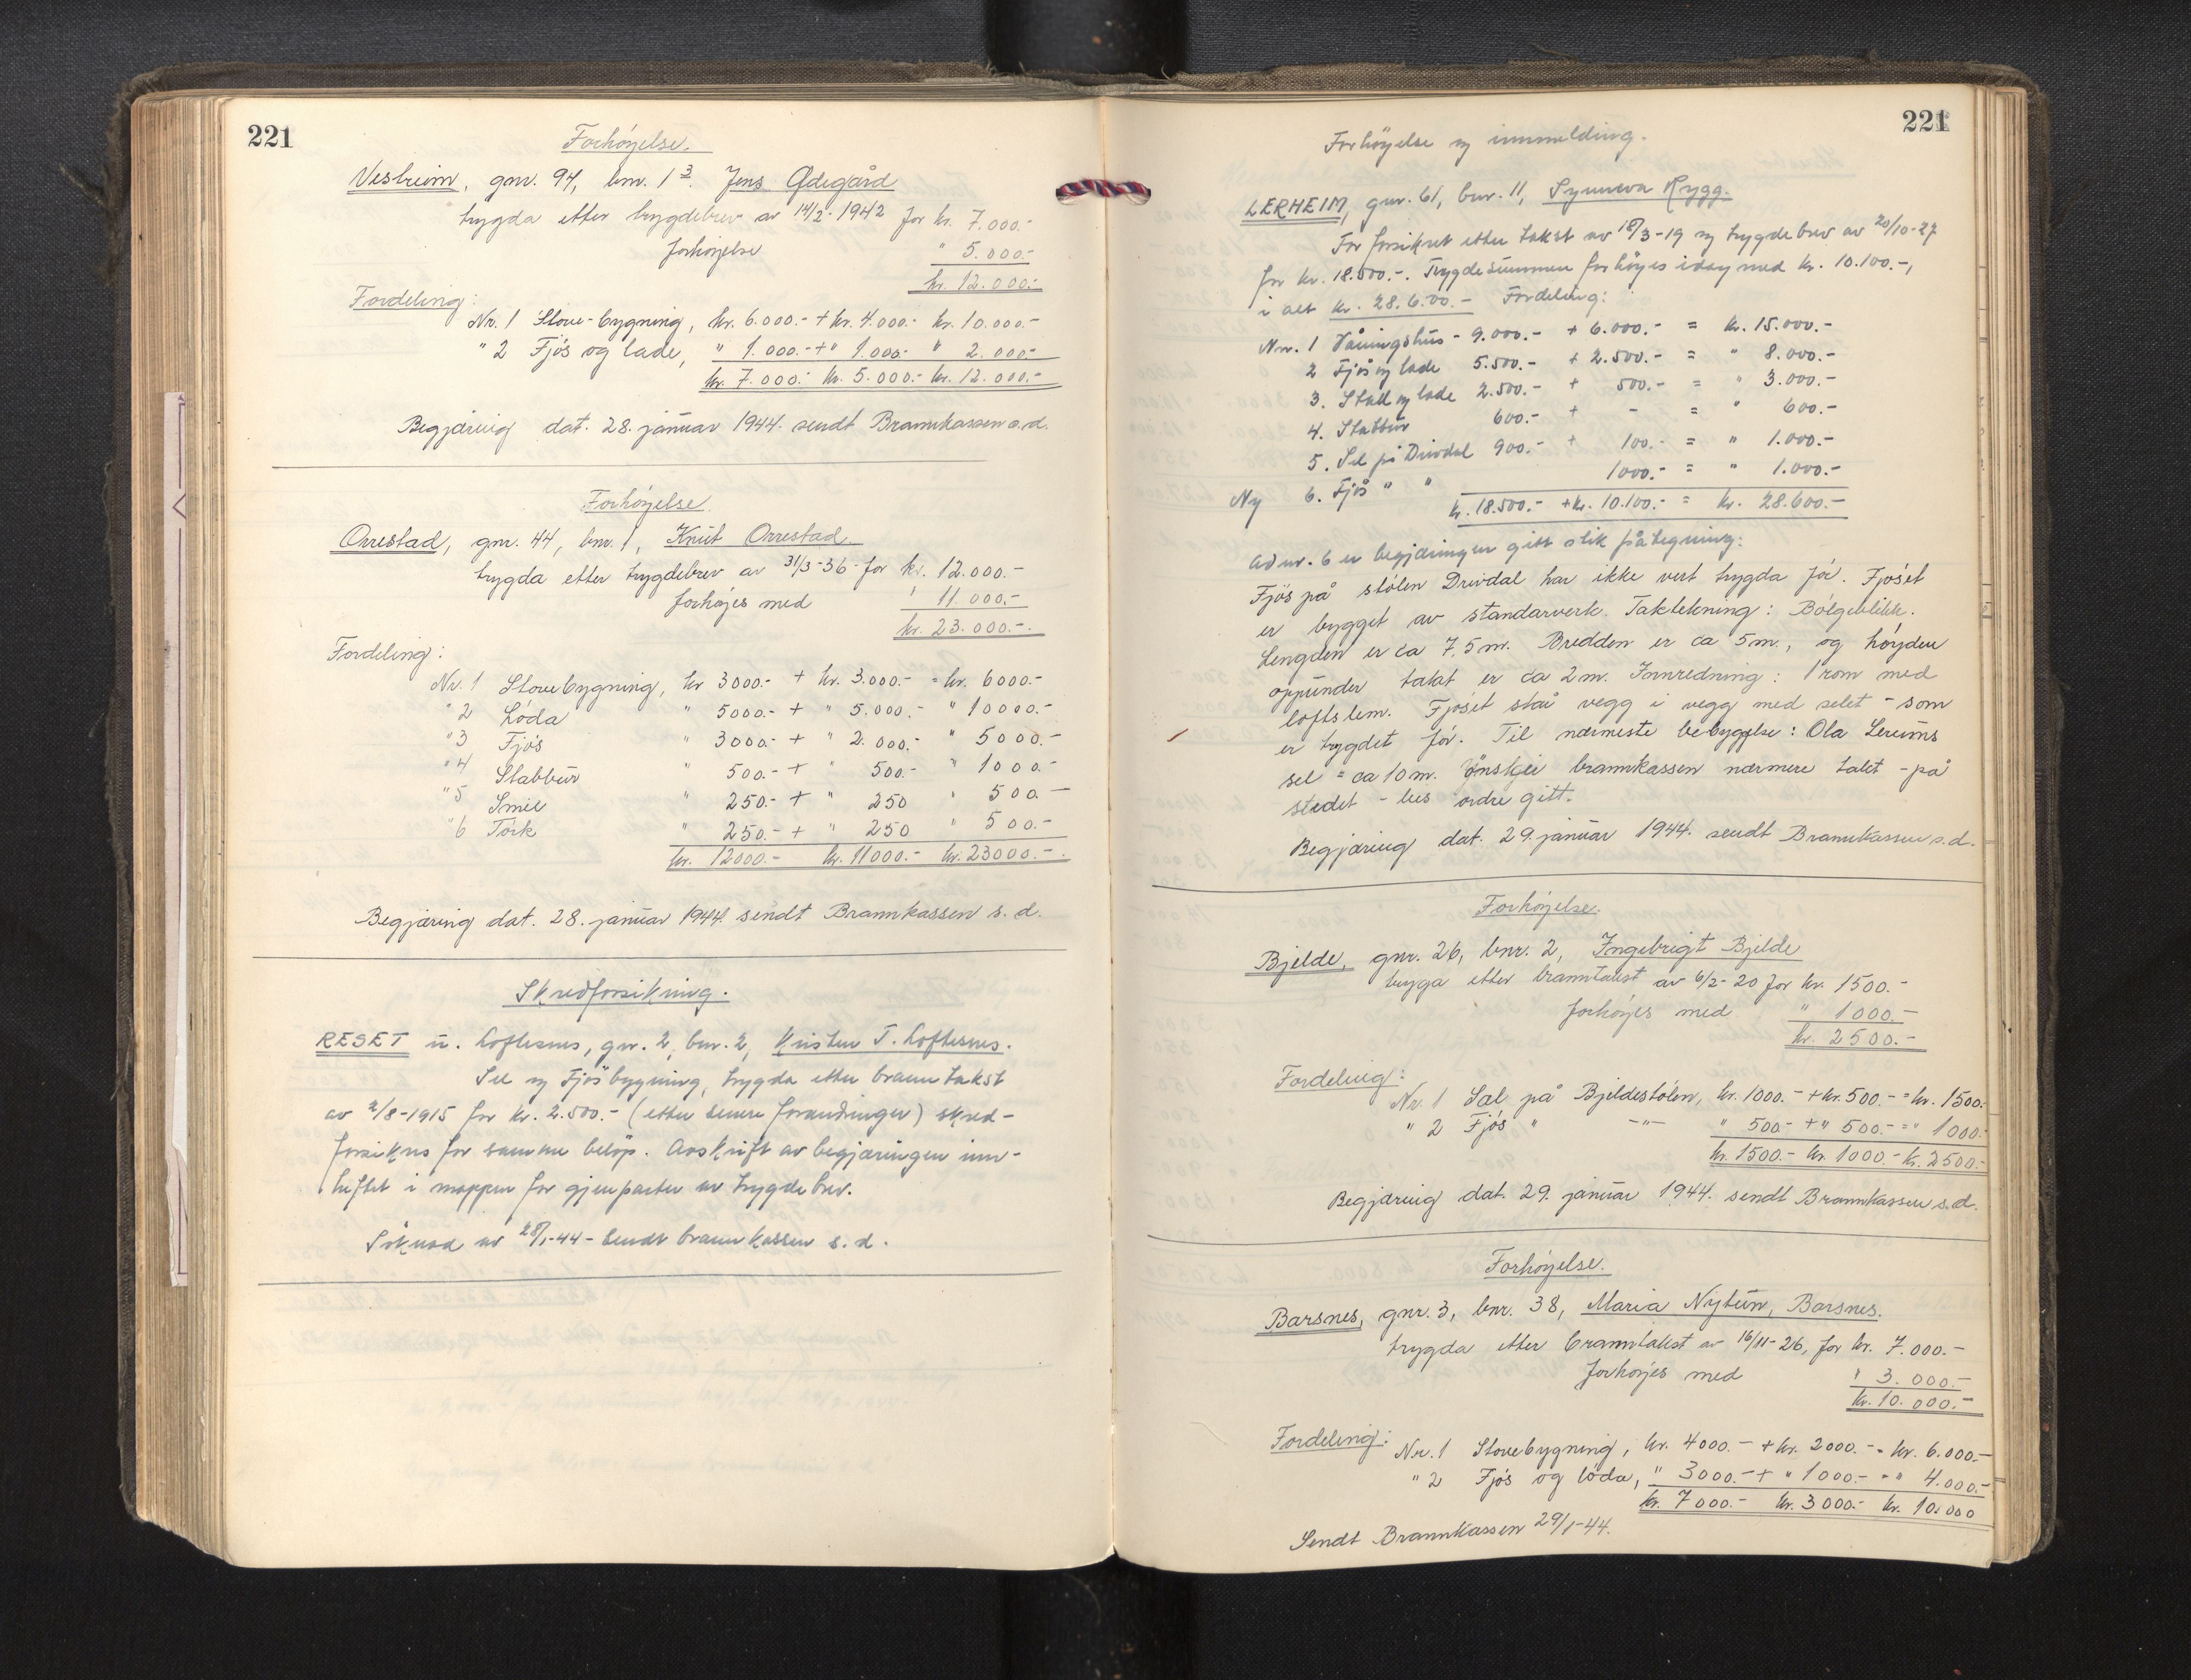 221
Forhöyelse.
Vestreim, gnr. 94, bnr. 1³. Jens Ødegård
trygda etter trygdebrev av 14/2-1942 for kr. 7.000.-
forhöyelse " 5.000.-
kr. 12.000.-
Fordeling:
Nr. 1 Stove-bygning, kr. 6.000.- + kr. 4.000.- kr. 10.000.-
" 2 Fjös og lade, " 1.000.- + " 1.000.- " 2.000.-
kr. 7.000.- kr. 5.000.- kr. 12.000.-
Begjæring dat. 28. januar 1944. sendt Brannkassen s.d.
Forhöyelse
Orrestad, gnr. 44, bnr. 1, Knut Orrestad
trygda etter trygdebrev av 31/3-36 for kr. 12.000.-
forhöjes med " 11.000.-
kr. 23.000.-.
Fordeling:
Nr. 1 Stovebygning, kr 3000.- + kr. 3.000.- = kr. 6000.-
" 2 Löda " 5000.- + " 5.000.- " 10000.-
" 3 Fjös " 3000.- + " 2.000.- " 5000.-
" 4 Stabbur " 500.- + " 500.- " 1000.-
" 5 Smie " 250.- + " 250 " 500.-
" 6 Törk " 250.- + " 250 " 500.-
kr. 12000.- kr. 11000.- kr. 23000.-.
Begjæring dat. 28. januar 1944. sendt Brannkassen s.d.
Skredforsikring.
RESET u. Loftesnes, gnr. 2, bnr. 2, Kristen T. Loftesnes.
Sel og Fjösbygning, trygda etter branntakst
av 2/8-1915 for kr. 2.500.- (etter senere forandringer) skred-
forsikres for samme belöp. Avskrift av begjæringen inn-
heftet i mappen for gjenparter av trygdebrev.
Söknad av 28/1-44 - Sendt brannkassen s.d.
221
Forhöyelse og innmelding.
LERHEIM, gnr. 61, bnr. 11, Synneva Rygg.
Før forsikret etter takst av 18/3-19 og trygdebrev av 20/10-27
for kr. 18.500.-. Trygdesummen forhöyes idag med kr. 10.100.-,
i alt kr. 28.600.- Fordeling:
Nr. 1 Våningshus - 9.000.- + 6.000.- = kr. 15.000.-
2 Fjös og lade 5.500.- + 2.500.- = " 8.000.-
3. Stall og lade 2.500.- + 500.- = " 3.000.-
4. Stabbur 600.- + - = " 600.-
5. Sel på Drivdal 900.- + 100.- = " 1.000.-
Ny 6. Fjös " " 1000.- = " 1.000.-
kr. 18.500.- + kr. 10.100.- = kr. 28.600.-
Ad nr. 6 er begjæringen gitt slik påtegning:
Fjös på stölen Drivdal har ikke vert trygda för. Fjöset
er bygget av standarverk. Taktekning: Bölgeblikk.
Lengden er ca 7,5 m. Bredden er ca 5 m., og höyden
oppunder taket er ca 2 m. Innredning: 1 rom med
loftslem. Fjöset står vegg i vegg med selet - som
er trygdet för. Til nærmeste bebyggelse: Ola Lerums
sel = ca 10 m. Ønskjer brannkassen nærmere takst - på
stedet - bes ordre gitt.
Begjæring dat. 29. januar 1944. sendt Brannkassen s.d.
Forhöyelse.
Bjelde, gnr. 26, bnr. 2, Ingebrigt Bjelde
tryga etter branntakst av 6/2-20 for kr. 1500.-
forhöyes med " 1000.-
kr. 2500.-
Fordeling:
Nr. 1 Sæl på Bjeldestölen, kr. 1000.- + kr. 500.- = kr. 1500.-
" 2 Fjös " -"- " 500.- + " 500.- = " 1000.-
kr. 1500.- kr. 1000.- kr. 2500.-
Begjæring dat. 29. januar 1944. sendt Brannkassen s.d.
Forhöyelse.
Barsnes, gnr. 3, bnr. 38, Maria Nytun, Barsnes.
trygda etter branntakst av 16/11-26, for kr. 7.000.-
forhöyes med " 3.000.-
kr. 10.000.-
Fordeling:
Nr. 1 Stovebygning, kr. 4000.- + kr. 2000.- = kr. 6.000.-
" 2 Fjös og löda, " 3000.- + " 1000.- = " 4.000.-
kr. 7000.- kr. 3000.- kr. 10.000
Sendt Brannkassen 29/1-44.